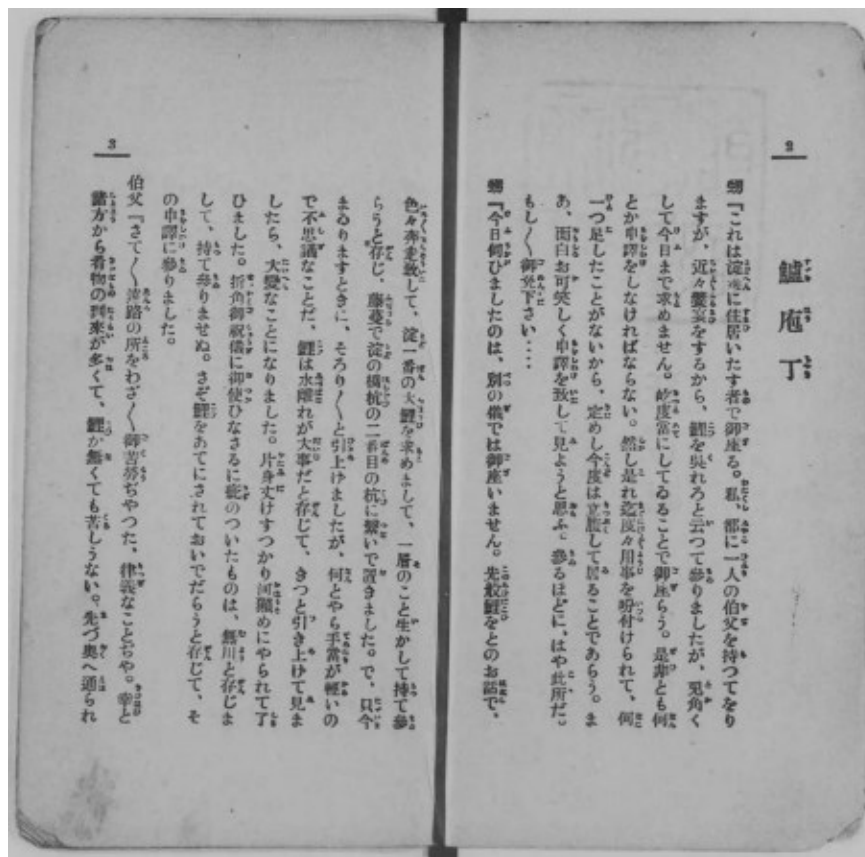 2
鱸庖丁
甥「これは淀邊に住居いたす者で御座る。私、都に一人の伯父を持つてをり
ますが、近々饗宴をするから、鯉を呉れろと云つて參りましたが、兎角く
して今日まで求めません。屹度當にしてゐることで御座らう。是非とも何
とか申譯をしなければならない。然し是れ迄度々用事を吩付けられて、何
一つ足したことがないから、定めし今度は立腹して居ることであらう。ま
あ、面白お可笑しく申譯を致して見ようと思ふ。參るほどに、はや此所だ。
もし〳〵御免下さい‥‥
甥「今日伺ひましたのは、別の儀では御座いません。先般鯉をとのお話で、
3
色々奔走致して、淀一番の大鯉を求めまして、一層のこと生かして持て參
らうと存じ、藤蔓で淀の橋杭の二番目の杭に繋いで置きました。で、只今
まゐりますときに、そろり〳〵と引上けましたが、何とやら手當が輕いの
で不思議なことだ、鯉は水離れが大事だと存じて、きつと引き上けて見ま
したら、大變なことになりました。片身丈けすつかり河獺めにやられて了
ひました。折角御祝儀に御使ひなさるに疵のついたものは、無用と存じま
して、持て參りませぬ。さぞ鯉をあてにされておいでだらうと存じて、そ
の申譯に參りました。
伯父「さて〳〵淀路の所をわざ〳〵御苦勞ぢやつた、律義なことぢや。幸と
諸方から肴物の到來が多くて、鯉か無くても苦しうない。先づ奥へ通られ